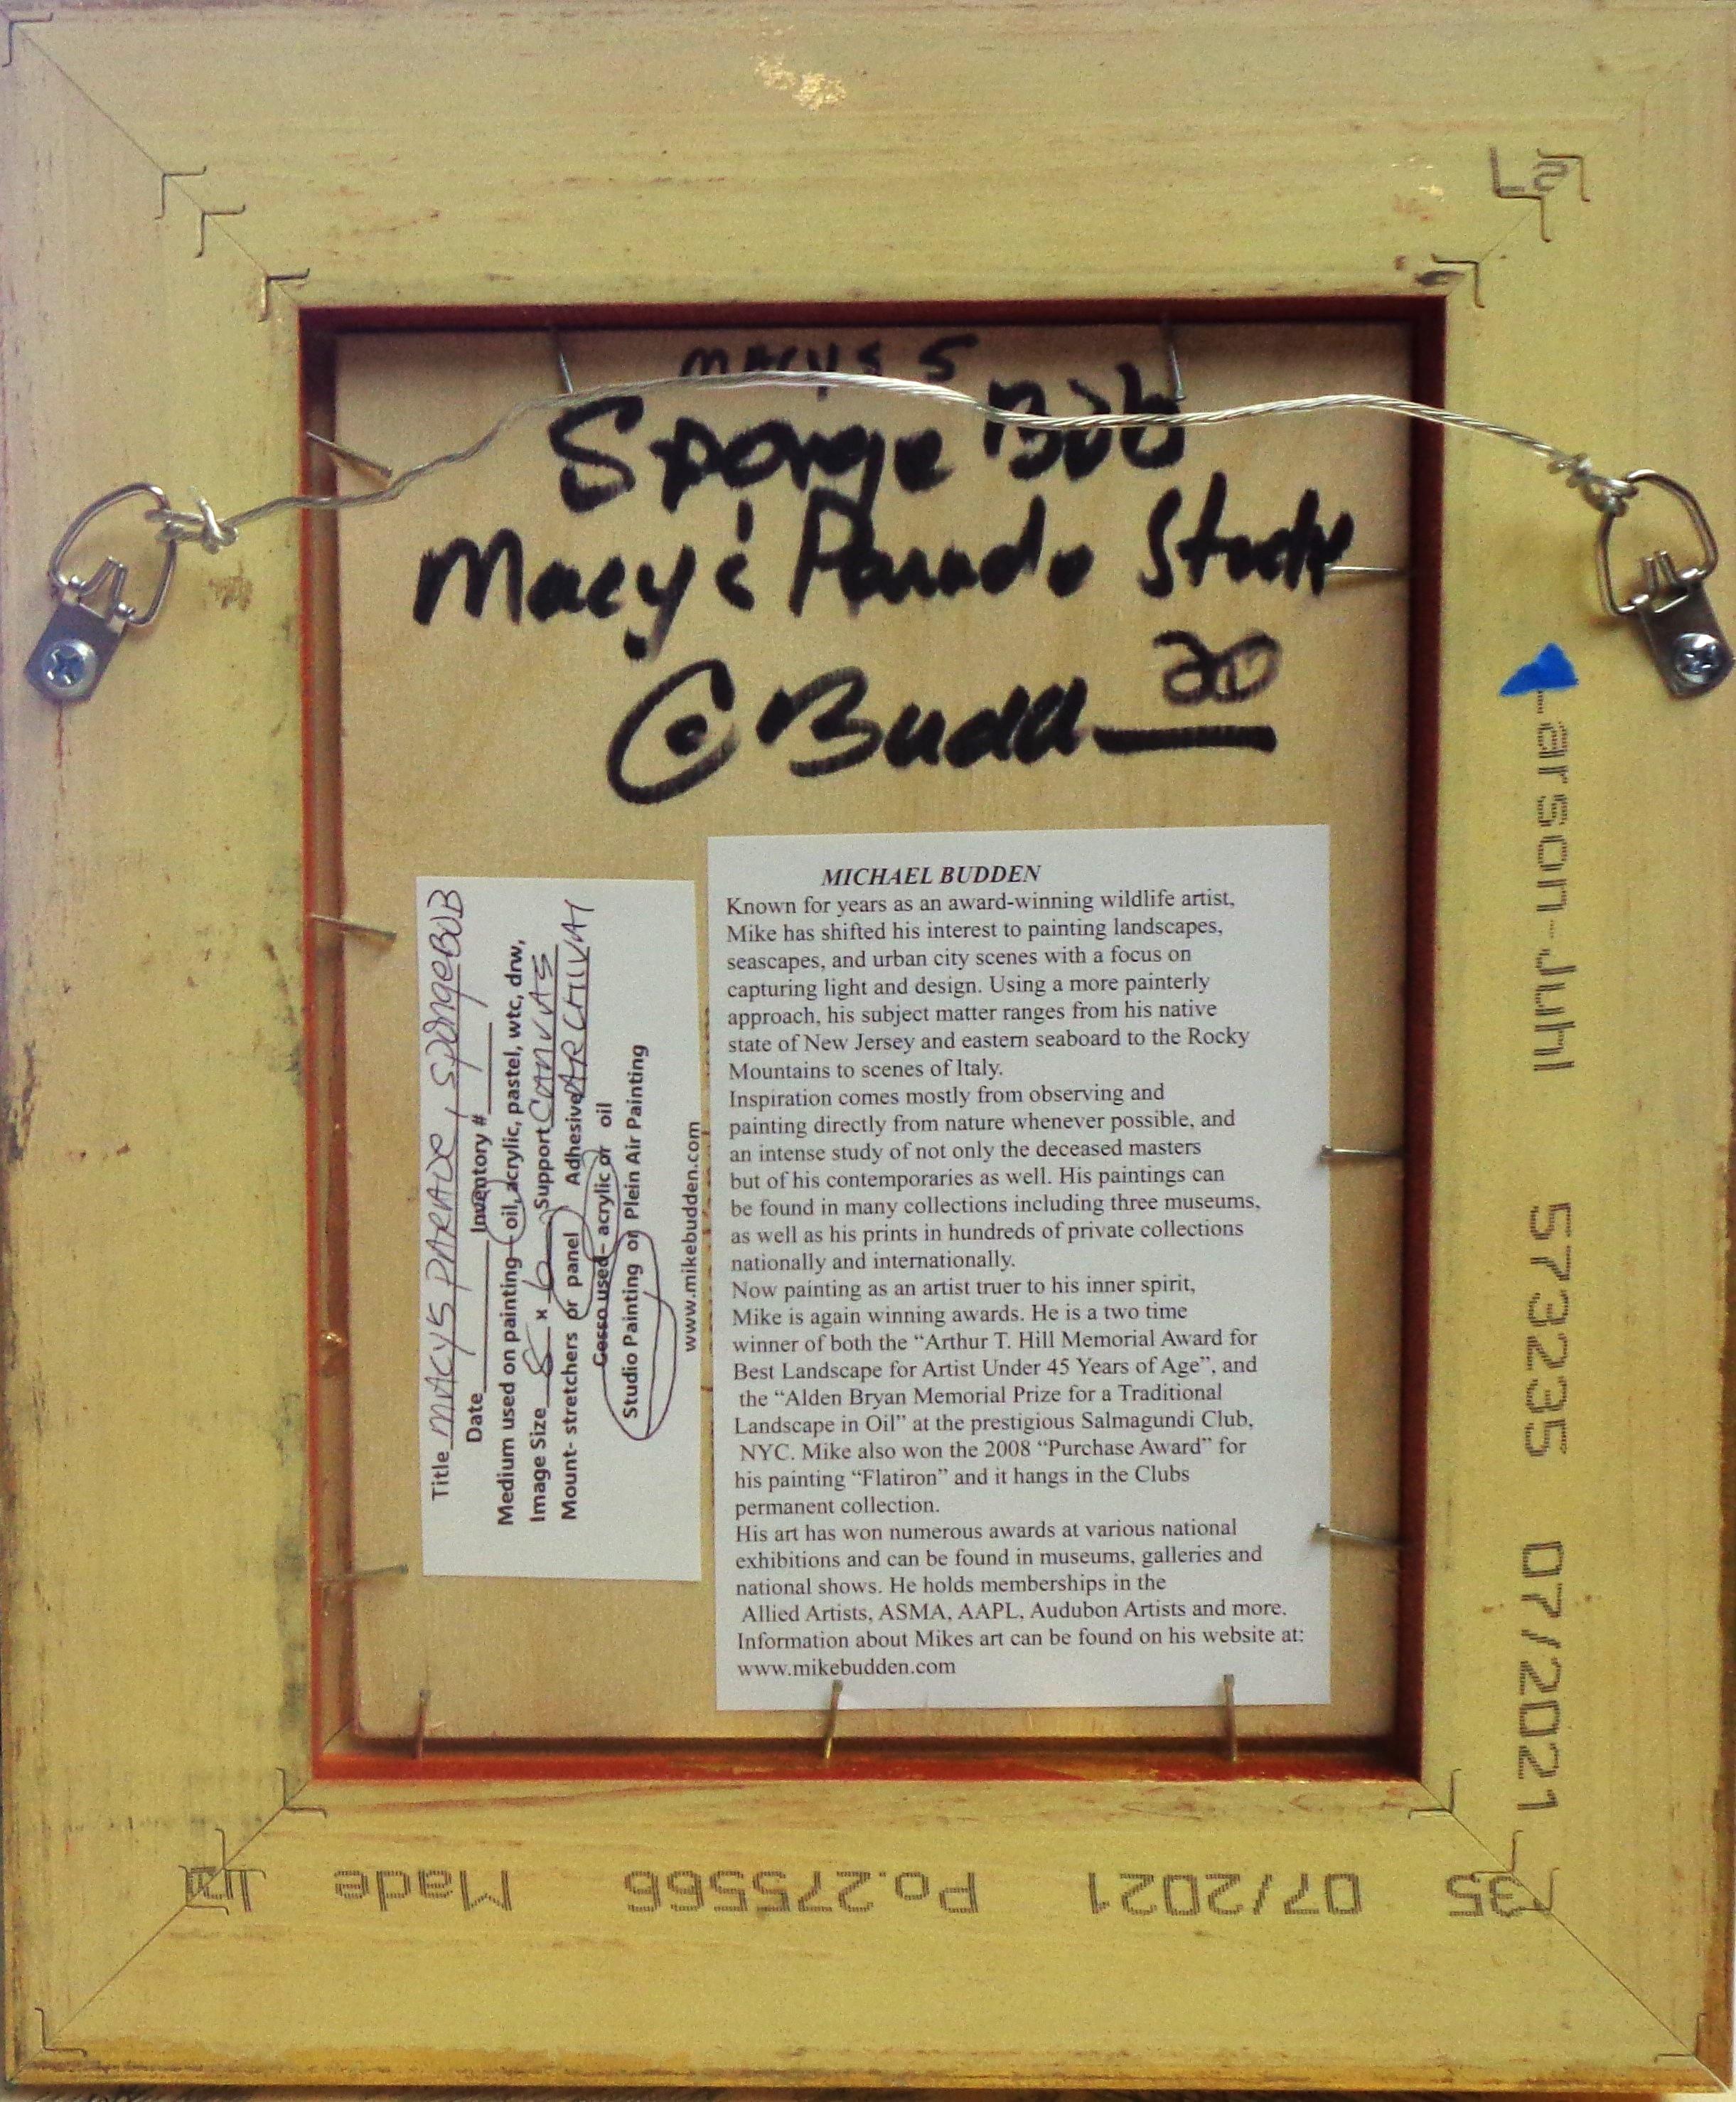 MACYS S
Sponge Bob
Macy's Parade Study
© Budd 20
MICHAEL BUDDEN
Known for years as an award-winning wildlife artist,
Mike has shifted his interest to painting landscapes,
seascapes, and urban city scenes with a focus on
capturing light and design. Using a more painterly
approach, his subject matter ranges from his native
state of New Jersey and eastern seaboard to the Rocky
Mountains to scenes of Italy.
Inspiration comes mostly from observing and
painting directly from nature whenever possible, and
an intense study of not only the deceased masters
but of his contemporaries as well. His paintings can
be found in many collections including three museums,
as well as his prints in hundreds of private collections
nationally and internationally.
Now painting as an artist truer to his inner spirit,
Mike is again winning awards. He is a two time
winner of both the “Arthur T. Hill Memorial Award for
Best Landscape for Artist Under 45 Years of Age”, and
the “Alden Bryan Memorial Prize for a Traditional
Landscape in Oil” at the prestigious Salmagundi Club,
NYC. Mike also won the 2008 “Purchase Award” for
his painting “Flatiron” and it hangs in the Clubs
permanent collection.
His art has won numerous awards at various national
exhibitions and can be found in museums, galleries and
national shows. He holds memberships in the
Allied Artists, ASMA, AAPL, Audubon Artists and more.
Information about Mikes art can be found on his website at:
www.mikebudden.com
Title MACYS PARADE, SPONGEBOB
Date Inventory #
Medium used on painting - oil, acrylic, pastel, wtc, drw,
Image Size 8 x 6 Support CANVAS
Mount- stretchers or panel Adhesive ARCHIVAL
Gesso used- acrylic or oil
Studio Painting or Plein Air Painting
www.mikebudden.com
Larson-Juhl 573235 07/2021
35 07/2021 Po.275566 Made